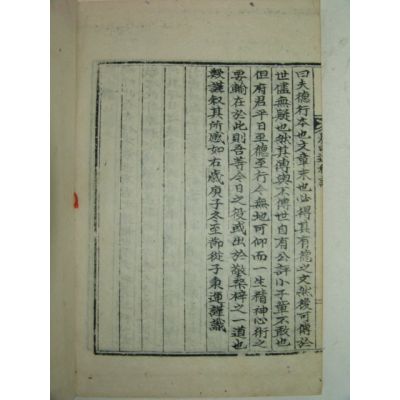 曰夫德行本也文章末也必得其有德之文然後可傳於
世儘無疑也然其傳與不傳世自有公評小子輩不敢也
但府君平日至德至行今無地可仰而一生精神心術之
所輸在於此則吾等今日之役或出於敬桑梓之一道也
歟謹叙其所感如右歲庚子冬至節從子東運謹識